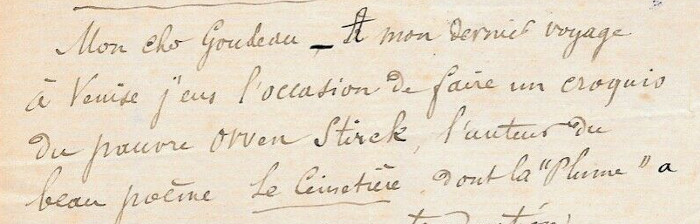 Mon cho Goudeau _ A mon dernier voyage
à Venise j'eus l'occasion de faire un croquis
du pauvre Orven Stirek, l'auteur du
beau poème Le Cimetière, dont la "Plume" a